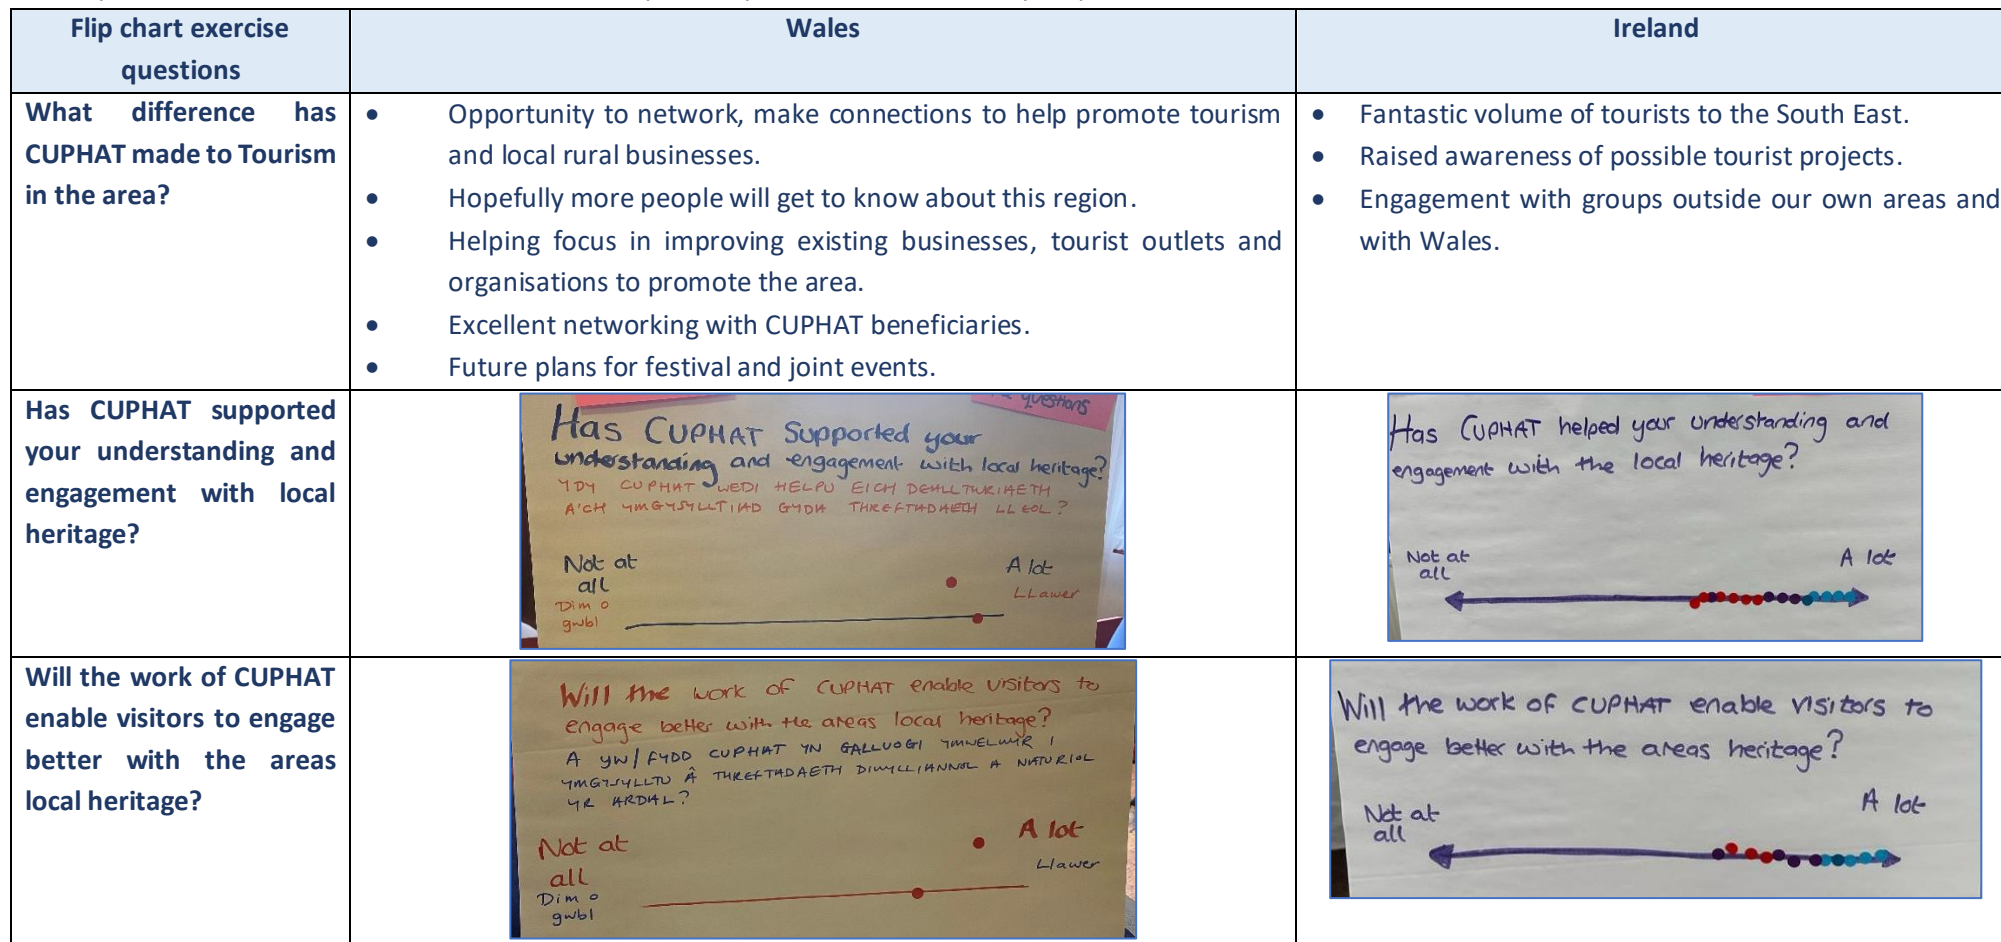 Flip chart exercise
questions
Wales
Ireland
What difference has
CUPHAT made to Tourism
in the area?
• Opportunity to network, make connections to help promote tourism
and local rural businesses.
• Hopefully more people will get to know about this region.
• Helping focus in improving existing businesses, tourist outlets and
organisations to promote the area.
• Excellent networking with CUPHAT beneficiaries.
• Future plans for festival and joint events.
• Fantastic volume of tourists to the South East.
• Raised awareness of possible tourist projects.
• Engagement with groups outside our own areas and
with Wales.
Has CUPHAT supported
your understanding and
engagement with local
heritage?
questions
Has CUPHAT Supported your
understanding and engagement with local heritage?
YDY CUPHAT WEDI HELPU EICH DEALLTWRIAETH
A'CH YMGYSYLLTIAD GYDA THREFTADAETH LLEOL?
Not at
all
Dim o
gwbl
A lot
LLawer
Has CUPHAT helped your understanding and
engagement with the local heritage?
Not at
all
A lot
Will the work of CUPHAT
enable visitors to engage
better with the areas
local heritage?
Will the work of CUPHAT enable visitors to
engage better with the areas local heritage?
A YW/FYDD CUPHAT YN GALLUOGI YMWELWYR I
YMGYSYLLTU Â THREFTADAETH DIWYLLIANNOL A NATURIOL
YR ARDAL?
Not at
all
Dim o
gwbl
A lot
Llawer
Will the work of CUPHAT enable visitors to
engage better with the areas heritage?
Not at
all
A lot